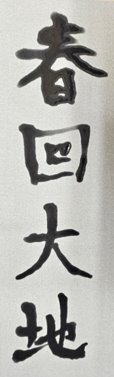 春回大地